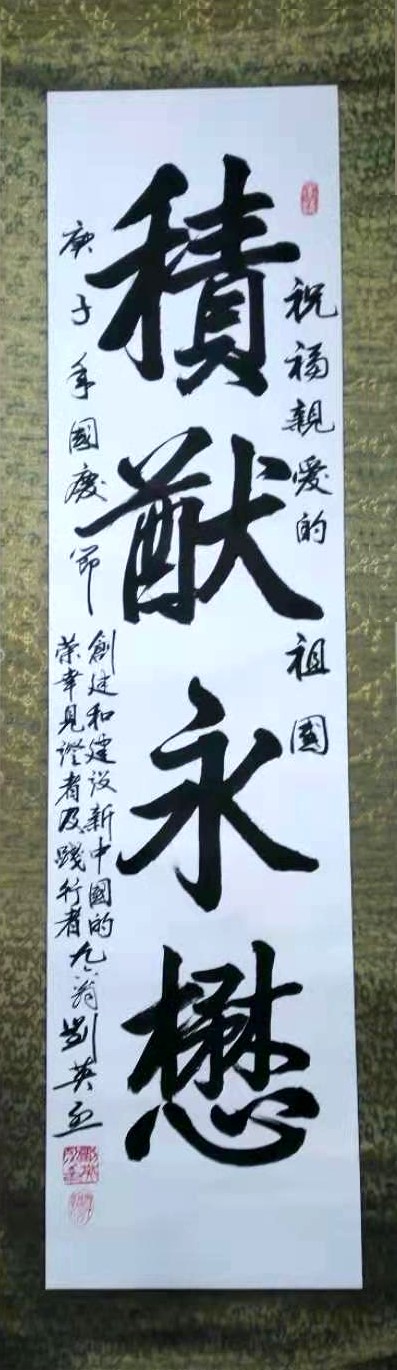 祝福親愛的 祖國
積猷永懋
庚子年國慶節
創建和建設新中國的
荣幸見證者及踐行者九六翁劉英